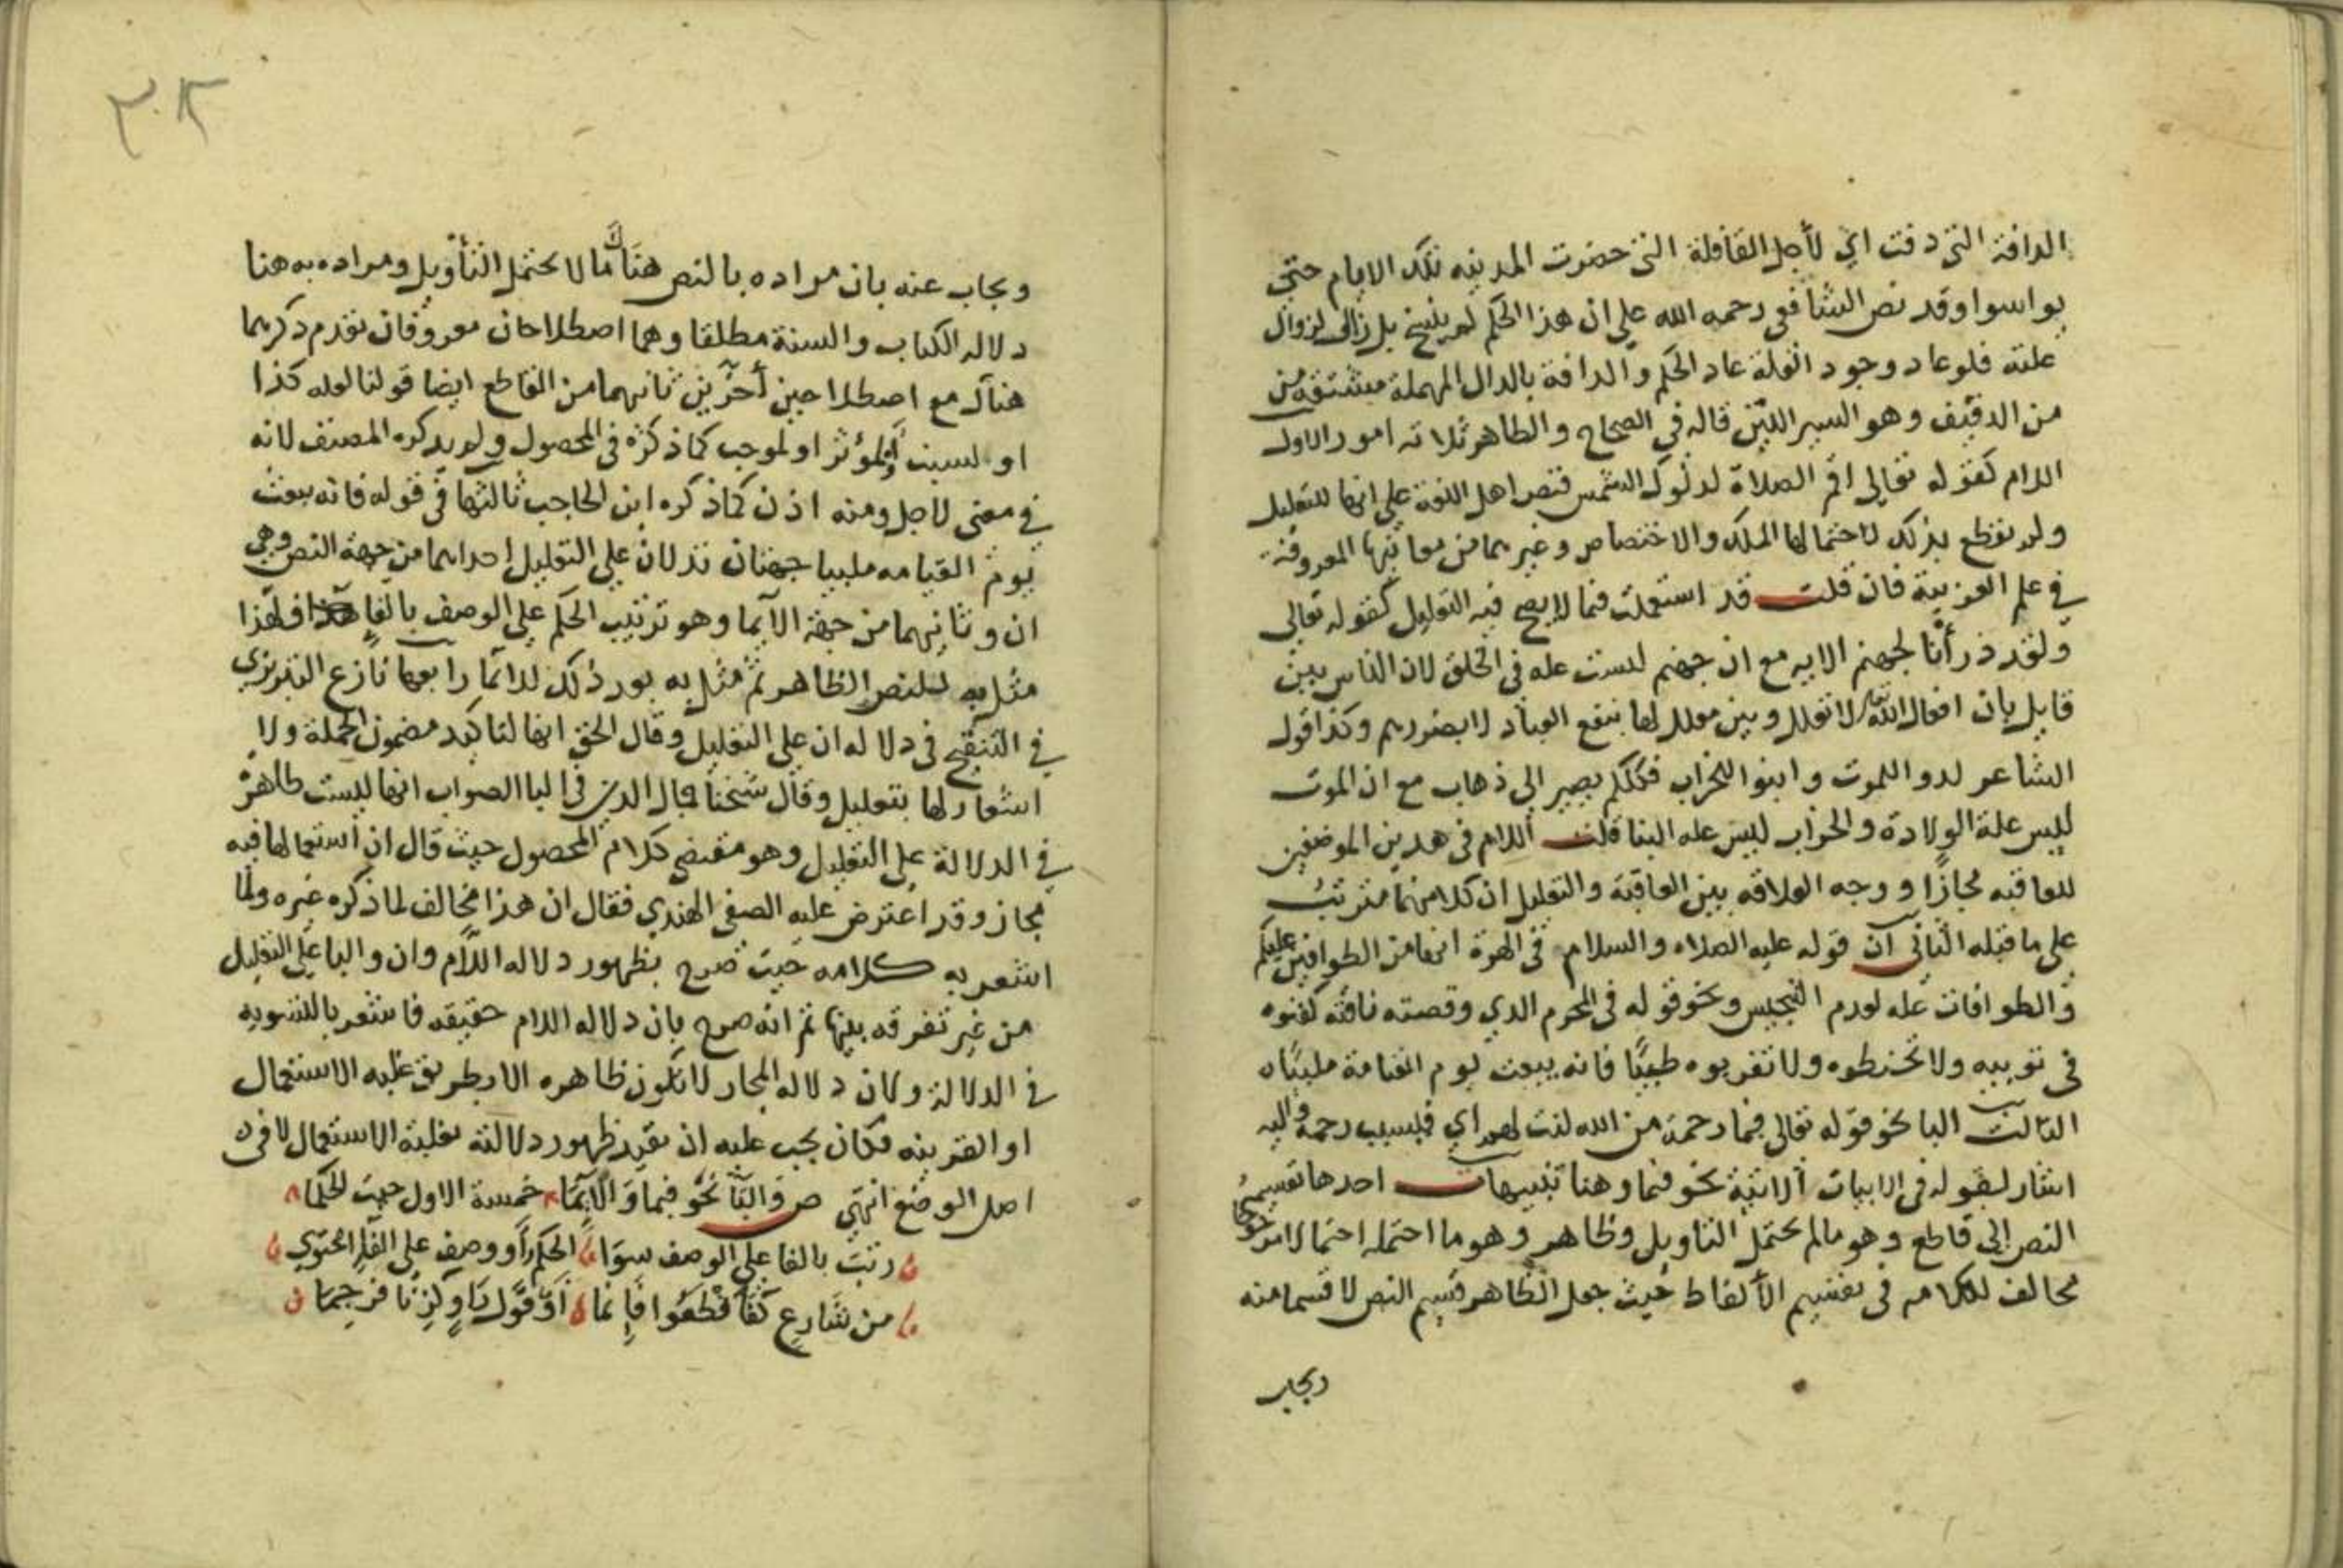 الدافة التي دفت اي لأجل القافلة التي حضرت المدينه تلك الايام حتي
يواسوا وقد نص الشافعي رحمه الله علي ان هذا الحكم لم ينسخ بل زال لزوال
علته فلو عاد وجود العلة عاد الحكم والدافة بالدال المهملة مشتقة من
من الدفيف وهو السير اللين قاله في الصحاح والظاهر ثلاثه امور الاول
اللام كقوله تعالي اقم الصلاة لدلوك الشمس فنص اهل اللغة علي انها للتعليل
ولم نقطع بذلك لاحتمالها الملك والاختصاص وغيرهما من معانيها المعروفة
في علم العربية فان قلت قد استعملت فيما لا يصح فيه التعليل كقوله تعالي
ولقد ذرأنا لجهنم الايه مع ان جهنم ليست عله في الخلق لان الناس بين
قايل بان افعال الله لا تعلل وبين معلل لها بنفع العباد لا بضررهم وكذا قول
الشاعر لدوا للموت وابنوا للخراب فكلكم يصير الى ذهاب مع ان الموت
ليس علة الولادة والخراب ليس عله البنا قلت اللام في هدين الموضعين
للعاقبه مجازا ووجه العلاقه بين العاقبة والتعليل ان كلا منهما مترتب
علي ما قبله الثاني ان قوله عليه الصلاه والسلام في الهرة انها من الطوافين عليكم
والطوافات عله لعدم التنجيس ونحو قوله في المحرم الدي وقصته ناقته كفنوه
في ثوبيه ولا تحنطوه ولا تقربوه طيبا فانه يبعث يوم القيامة ملبيا
الثالث البا نحو قوله تعالي فبما رحمة من الله لنت لهم اي فبسبب رحمة واليه
اشار بقوله في الابيات الاتية نحو فبما وهنا تنبيهات احدها تقسيم
النص الى قاطع وهو مالم يحتمل التاويل وظاهر وهو ما احتمله احتمالا مرجوحا
مخالف لكلامه في تقسيم الألفاظ حيث جعل الظاهر قسيم النص لا قسما منه
ويجاب
٣٠٢
ويجاب عنه بان مراده بالنص هناك مالا يحتمل التأويل ومراده به هنا
دلاله الكتاب والسنة مطلقا وهما اصطلاحان معروفان تقدم ذكرهما
هناك مع اصطلاحين أخرين ثانيهما من القاطع ايضا قولنا لعله كذا
او لسبب او لمؤثر او لموجب كما ذكره في المحصول ولم يدكره المصنف لانه
في معني لاجل ومنه اذن كما ذكره ابن الحاجب ثالثها في قوله فانه يبعث
يوم القيامه ملبيا جهتان تدلان علي التعليل احداهما من جهة النص وهي
ان وثانيهما من جهة الايما وهو ترتيب الحكم علي الوصف بالفا فلهذا
مثل به للنص الظاهر ثم مثل به بعد ذلك للايما رابعها نازع التبريزي
في التنقيح في دلاله ان علي التعليل وقال الحق انها لتاكيد مضمون الجملة ولا
اشعار لها بتعليل وقال شيخنا جمال الدين في البا الصواب انها ليست ظاهرة
في الدلالة علي التعليل وهو مقتضي كلام المحصول حيث قال ان استعمالها فيه
مجاز وقد اعترض عليه الصفي الهندي فقال ان هذا مخالف لما ذكره غيره ولما
اشعر به كلامه حيث صرح بظهور دلاله اللام وان والبا علي التعليل
من غير تفرقه بينها ثم انه صرح بان دلاله اللام حقيقه فاشعر بالتسويه
في الدلالة ولان دلاله المجاز لا تكون ظاهره الا بطريق غلبه الاستعمال
او القرينه فكان يجب عليه ان يقيد ظهور دلالته بغلبة الاستعمال لا في
اصل الوضع انتهي ص والبا نحو فبما والايما خمسة الاول حيث الحكما
رتب بالفا علي الوصف سوا الحكم أو وصف علي الفا احتوي
من شارع كفاقطعوا فانما او قول راو كزنا فرجما